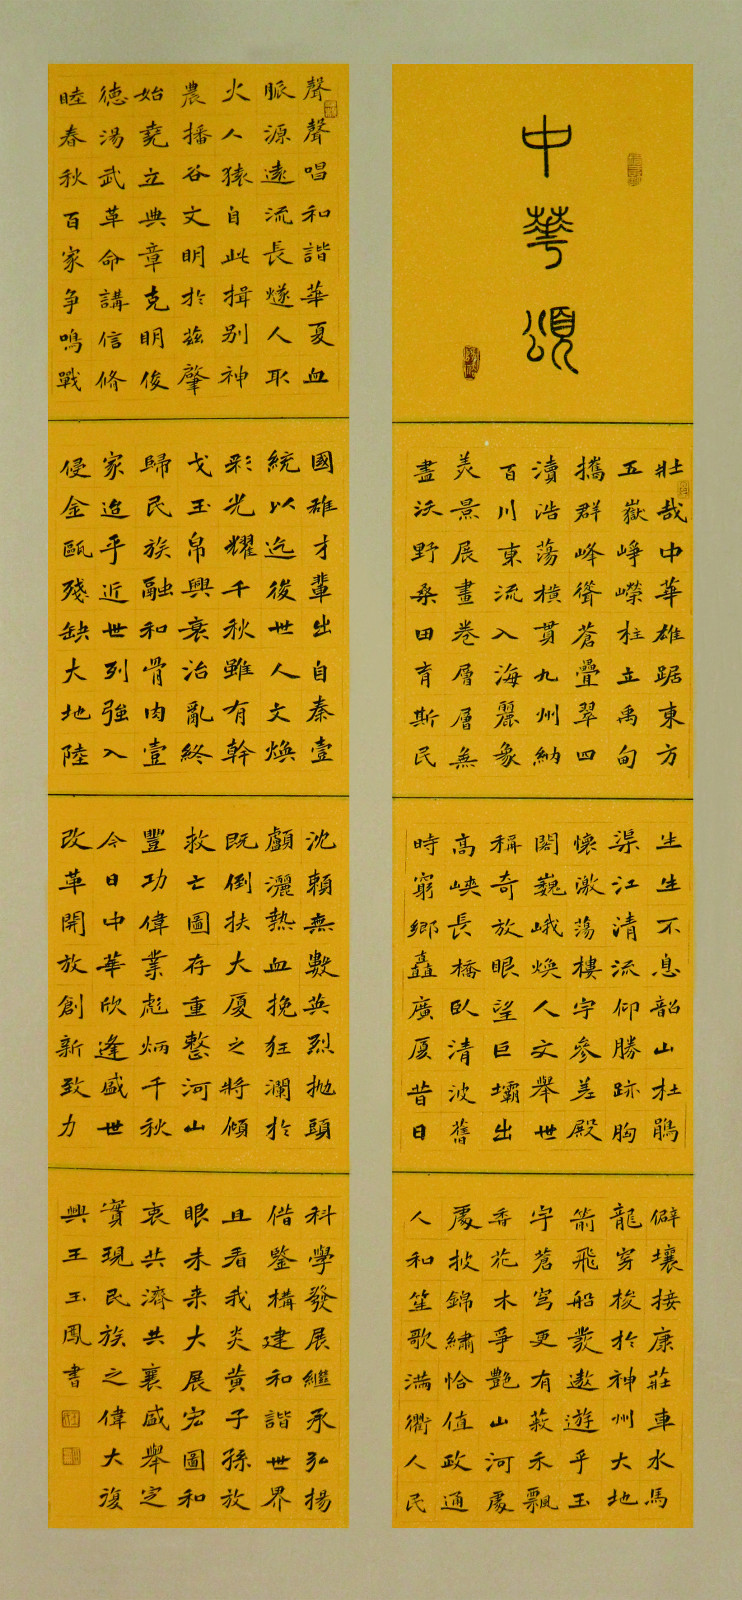 中華頌
壯哉中華雄踞東方
五嶽崢嶸柱立禹甸
攜群峰聳蒼疊翠四
瀆浩蕩橫貫九州納
百川東流入海麗象
美景展畫卷層層無
盡沃野桑田育斯民
生生不息韶山杜鵑
渠江清流仰勝跡胸
懷激蕩樓宇參差殿
閣巍峨煥人文舉世
稱奇放眼望巨壩出
高峽長橋臥清波舊
時窮鄉矗廣廈昔日
僻壤接康莊車水馬
龍穿梭於神州大地
箭飛船發遨遊乎玉
宇蒼穹更有菽禾飄
香花木爭艷山河處
處披錦繡恰值政通
人和笙歌滿衢人民
聲聲唱和諧華夏血
脈源遠流長燧人取
火人猿自此揖別神
農播谷文明於茲肇
始堯立典章克明俊
德湯武革命講信修
睦春秋百家爭鳴戰
國雄才輩出自秦壹
統以迄後世人文煥
彩光耀千秋雖有幹
戈玉帛興衰治亂終
歸民族融和骨肉壹
家迨乎近世列強入
侵金甌殘缺大地陸
沈賴無數英烈拋頭
顱灑熱血挽狂瀾於
既倒扶大廈之將傾
救亡圖存重整河山
豐功偉業彪炳千秋
今日中華欣逢盛世
改革開放創新致力
科學發展繼承弘揚
借鑒構建和諧世界
且看我炎黃子孫放
眼未來大展宏圖和
衷共濟共襄盛舉定
實現民族之偉大復
興王玉鳳書